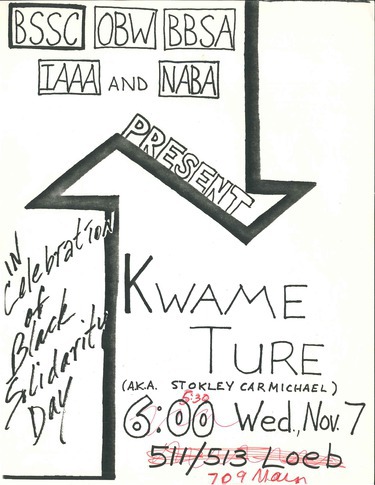 BSSC OBW BBSA
IAAA AND NABA
PRESENT
IN
Celebration
of
Black
Solidarity
Day
KWAME
TURE
(A.K.A. STOKLEY CARMICHAEL)
5:30
6:00 Wed., Nov. 7
511/513 Loeb
709 Main